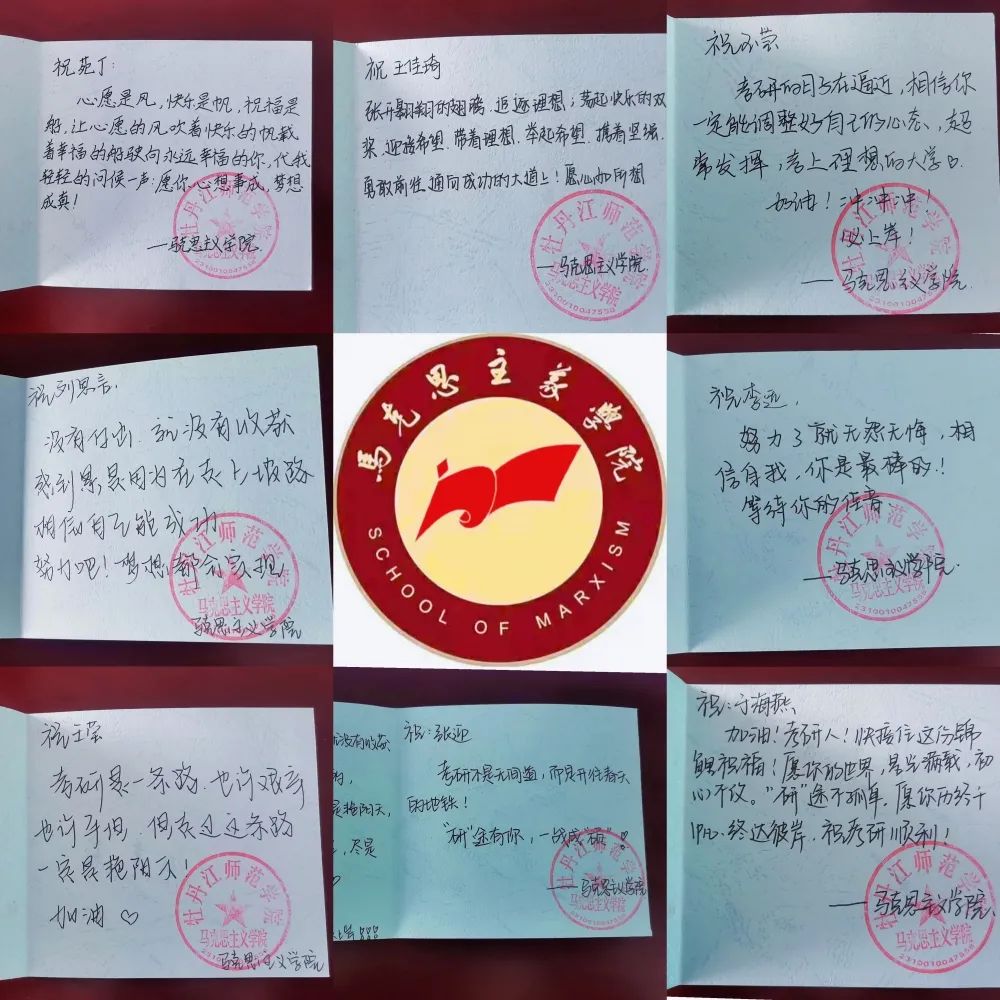 祝苑丁：
心愿是风，快乐是帆，祝福是
船，让心愿的风吹着快乐的帆载
着幸福的船驶向永远幸福的你，代我
轻轻的问候一声：愿你心想事成，梦想
成真！
——马克思主义学院
牡丹江师范学院
马克思主义学院
2310010047558
祝王佳琦
张开翱翔的翅膀，追逐理想；荡起快乐的双
桨，迎接希望。带着理想，举起希望，携着坚强，
勇敢前往，通向成功的大道上！愿心如所想
——马克思主义学院
牡丹江师范学院
马克思主义学院
2310010047558
考研的日子在逼近，相信你
一定能调整好自己的心态，超
常发挥，考上理想的大学♡.
加油！冲冲冲！
必上岸！
——马克思主义学院.
牡丹江师范学院
马克思主义学院
2310010047558
祝刘思言，
没有付出，就没有收获
感到累是因为在走上坡路
相信自己能成功
努力吧！梦想都会实现
马克思主义学院
牡丹江师范学院
马克思主义学院
馬克思主義學院
SCHOOL OF MARXISM
祝李远，
努力了就无怨无悔，相
信自我，你是最棒的！
等待你的佳音
——马克思主义学院.
牡丹江师范学院
马克思主义学院
2310010047558
祝王莹
考研是一条路，也许艰辛
也许平坦，但走过这条路
一定是艳阳天！
加油♡
马克思主义学院
牡丹江师范学院
马克思主义学院
2310010047558
没有收获
是艳阳天，
，尽是
祝：张迎
考研不是无间道，而是开往春天
的地铁！
“研”途有你，一战成硕♡
——马克思主义学院
牡丹江师范学院
马克思主义学院
2310010047558
祝：于海燕
加油！考研人！快接住这份锦
鲤祝福！愿你的世界，星光满载，初
心不改。“研”途不孤单，愿你历经千
帆，终达彼岸，祝考研顺利！
——马克思主义学院
牡丹江师范学院
马克思主义学院
2310010047558